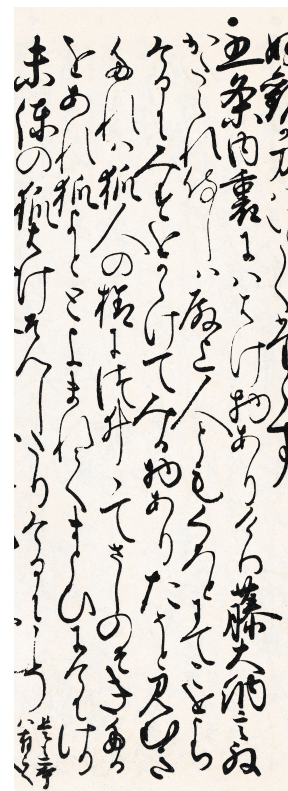 五条内裏にハはけ物ありけり藤大納言殿
かたられ侍しハ殿上人ともくろとにてこをうち
けるにみすをかゝけてみる物ありたそと見むき
たれハ狐人の様についゐてさしのそきたる
をあれ狐よとゝよまれてまとひにけにけり
未練の狐はけそんしたりけるにこそ